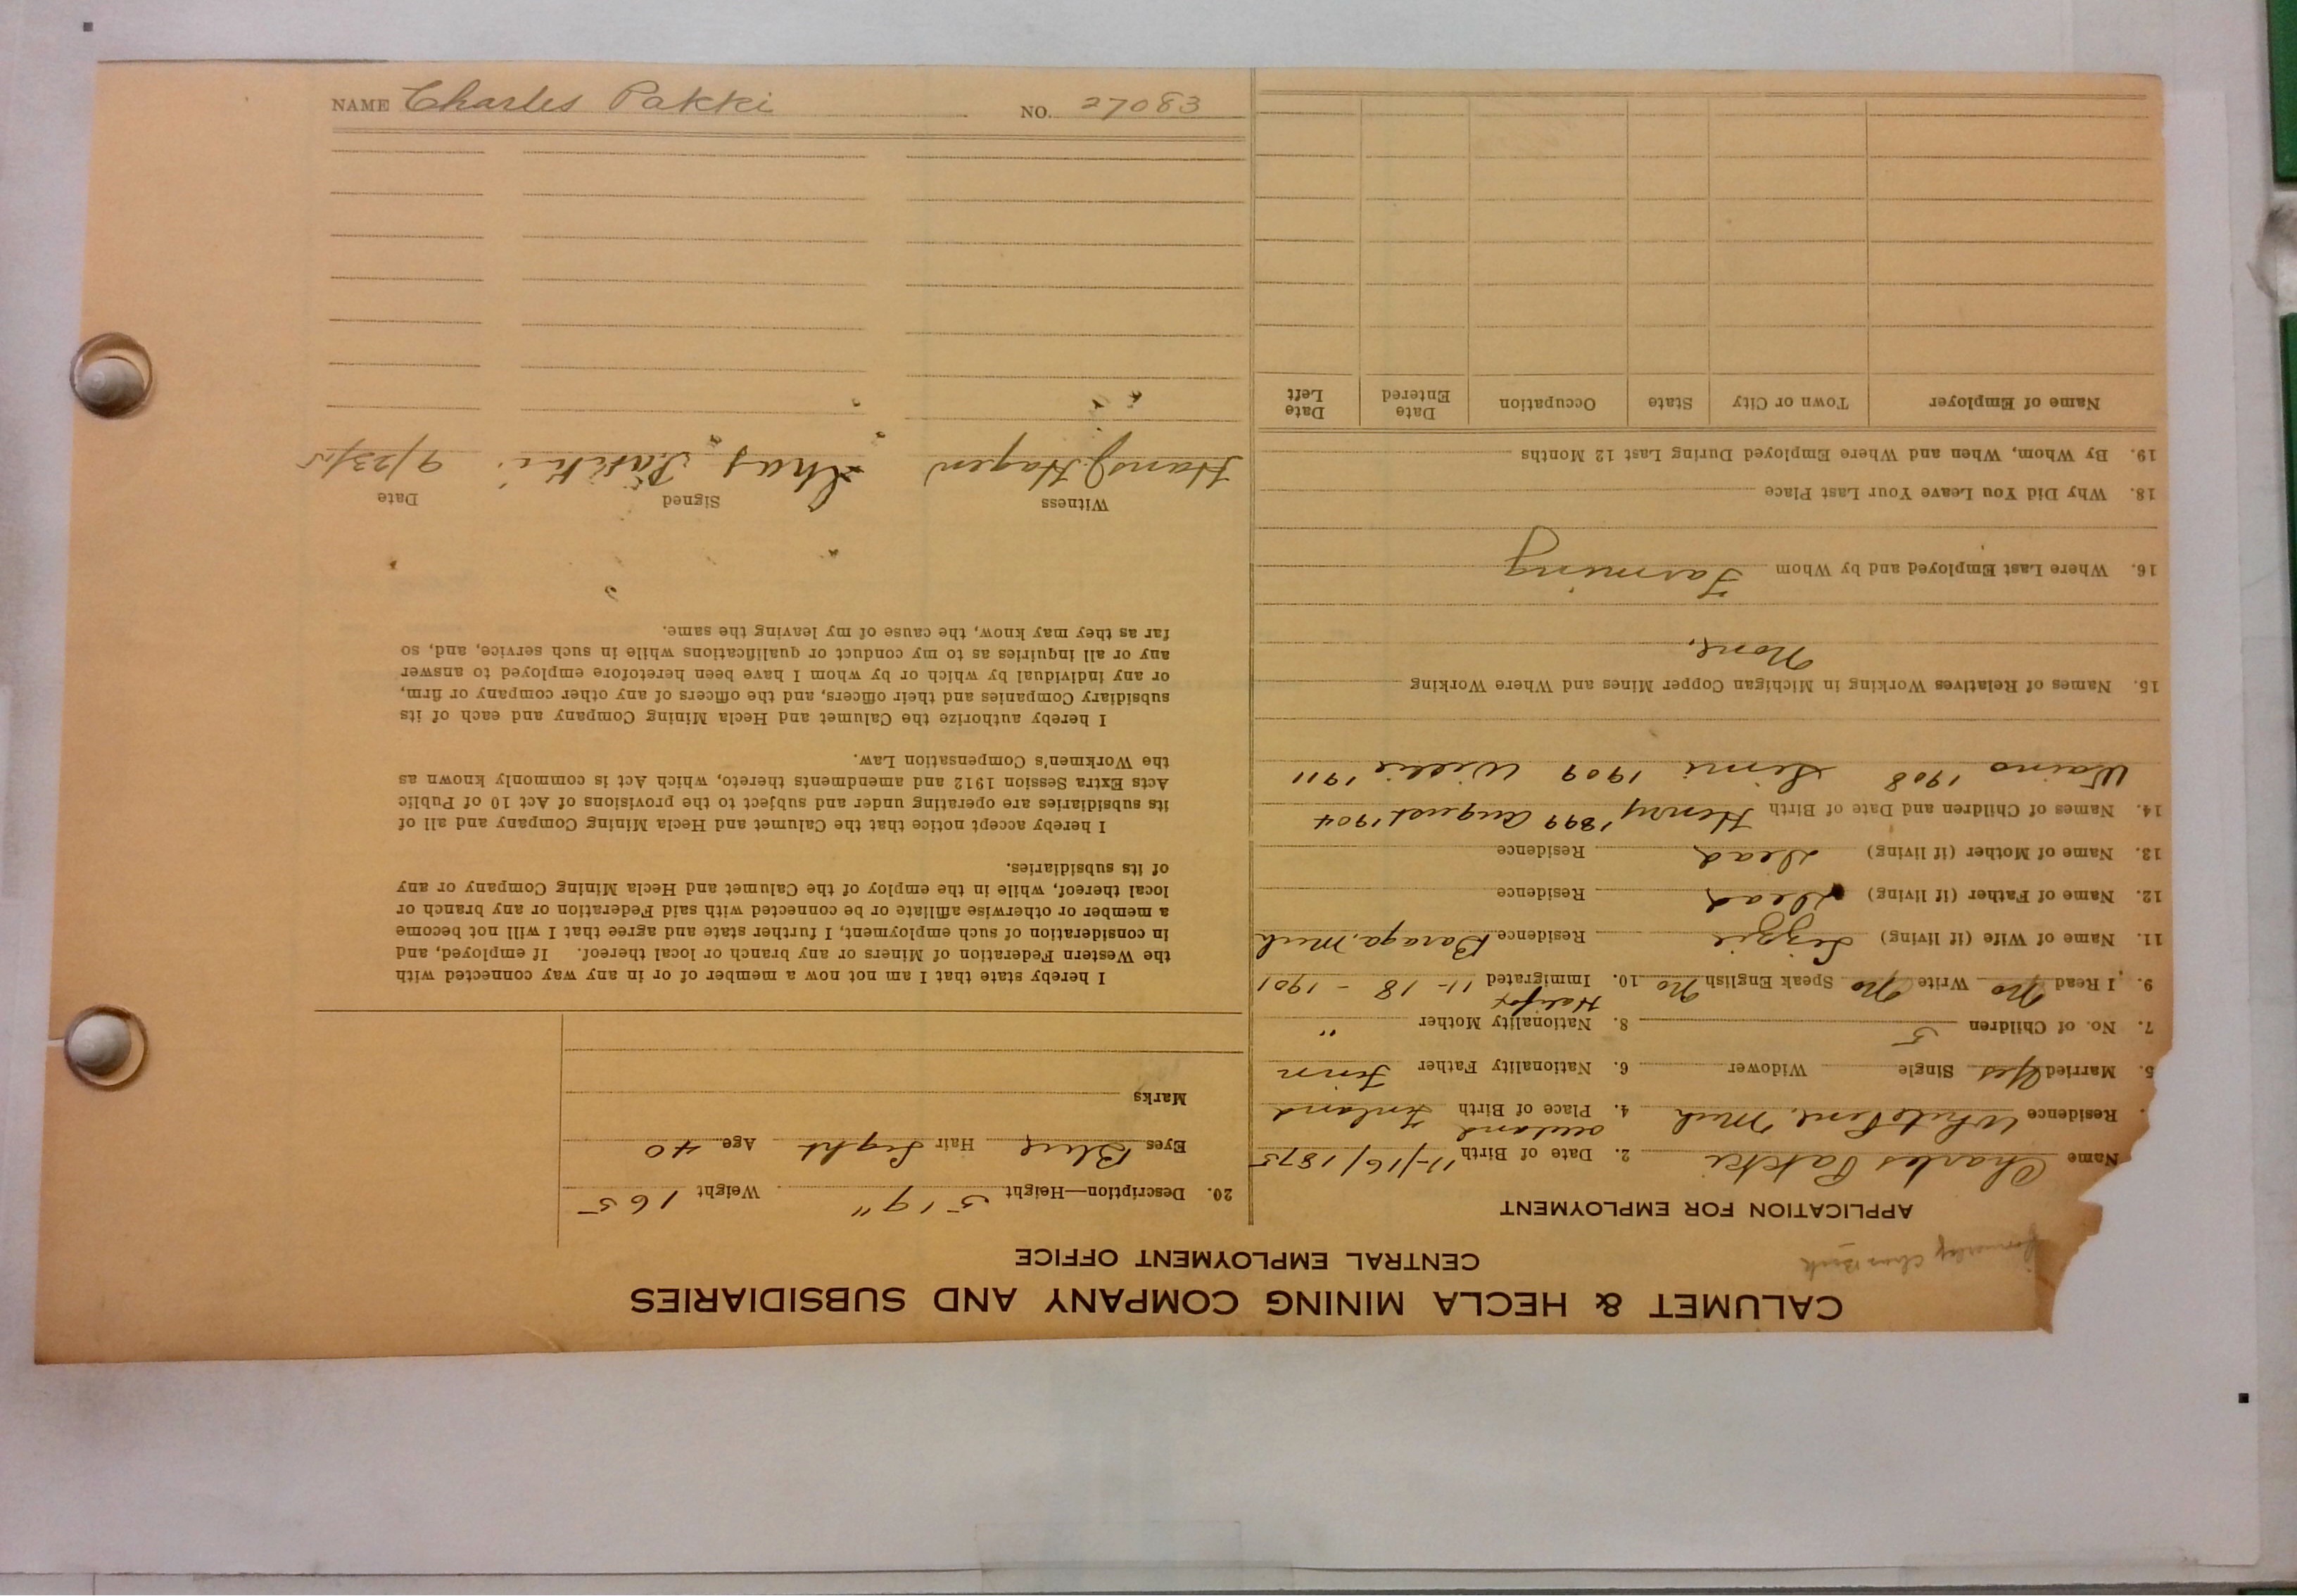 CALUMET & HECLA MINING COMPANY AND SUBSIDIARIES
CENTRAL EMPLOYMENT OFFICE
formerly Chas
APPLICATION FOR EMPLOYMENT
Name Charles Pakki 2. Date of Birth 11/16/1875
Residence White Pine, Mich 4. Place of Birth Finland
5. Married Yes Single Widower 6. Nationality Father Finn
7. No. of Children 5 8. Nationality Mother "
Halifax
9. I Read No Write No Speak English No 10. Immigrated 11-18-1901
11. Name of Wife (if living) Lizzie Residence Baraga, Mich
12. Name of Father (if living) Dead Residence
13. Name of Mother (if living) Dead Residence
14. Names of Children and Date of Birth Henry 1899 August 1904
Waino 1908 Simi 1909 Willie 1911
15. Names of Relatives Working in Michigan Copper Mines and Where Working
None.
16. Where Last Employed and by Whom Farming
18. Why Did You Leave Your Last Place
19. By Whom, When and Where Employed During Last 12 Months
Name of Employer Town or City State Occupation Date Entered Date Left
20. Description—Height 5' 9" Weight 165
Eyes Blue Hair Light Age 40
Marks
I hereby state that I am not now a member of or in any way connected with
the Western Federation of Miners or any branch or local thereof. If employed, and
in consideration of such employment, I further state and agree that I will not become
a member or otherwise affiliate or be connected with said Federation or any branch or
local thereof, while in the employ of the Calumet and Hecla Mining Company or any
of its subsidiaries.
I hereby accept notice that the Calumet and Hecla Mining Company and all of
its subsidiaries are operating under and subject to the provisions of Act 10 of Public
Acts Extra Session 1912 and amendments thereto, which Act is commonly known as
the Workmen's Compensation Law.
I hereby authorize the Calumet and Hecla Mining Company and each of its
subsidiary Companies and their officers, and the officers of any other company or firm,
or any individual by which or by whom I have been heretofore employed to answer
any or all inquiries as to my conduct or qualifications while in such service, and, so
far as they may know, the cause of my leaving the same.
Witness Signed Date
Hans J. Hagen Chas. Pakki. 9/23/15
NAME Charles Pakki NO. 27083